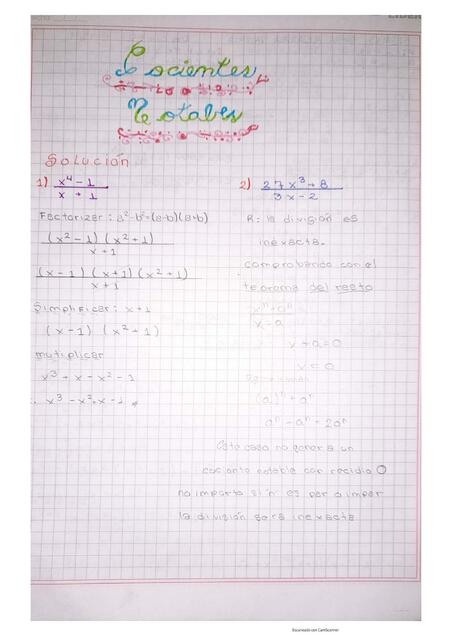 Cocientes
Notables
Solución
1) x⁴ - 1 / x + 1
Factorizar: a²-b²=(a-b)(a+b)
(x² - 1) (x² + 1) / x+1
(x - 1) (x+1) (x² + 1) / x+1
Simplificar: x+1
(x - 1) (x² + 1)
multiplicar
x³ + x - x² - 1
x³ - x² + x - 1
2) 27x³ + 8 / 3x - 2
R: la división es
inexacta.
comprobando con el
teorema del resto
xⁿ + aⁿ / x - a
x + a = 0
x = a
(a)ⁿ + aⁿ
aⁿ - aⁿ = 2aⁿ
Este caso no genera un
cociente notable con recidio 0
no importa si n es par o impar
la división será inexacta
Escaneado con CamScanner